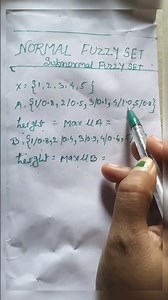 NORMAL FUZZY SET
Subnormal Fuzzy SET
X = {1, 2, 3, 4, 5}
A = {1/0.8, 2/0.5, 3/0.1, 4/1.0, 5/0.8}
height = Max μA =
B = {1/0.8, 2/0.4, 3/0.3, 4/0.6,
height = Max μB =